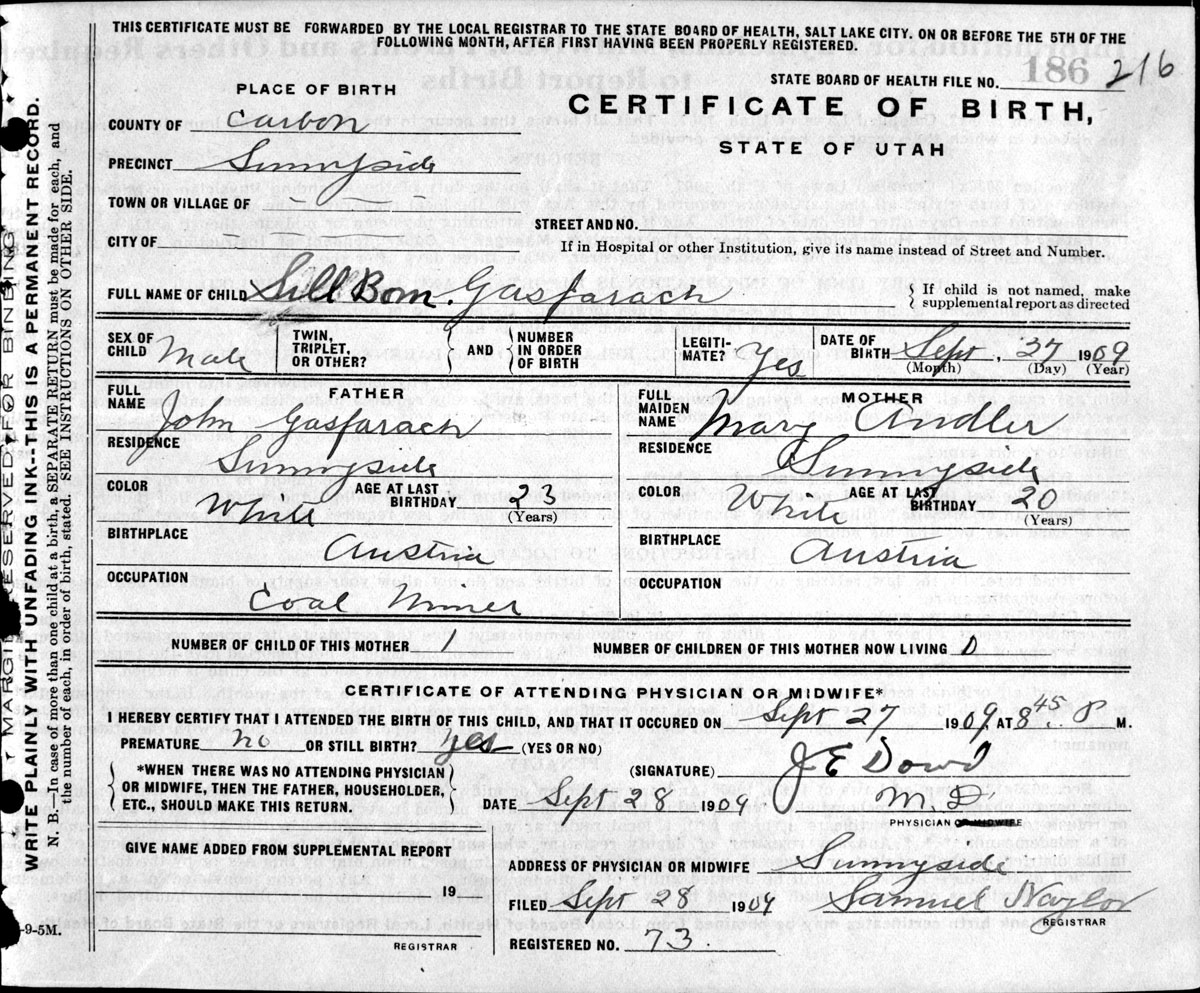 THIS CERTIFICATE MUST BE FORWARDED BY THE LOCAL REGISTRAR TO THE STATE BOARD OF HEALTH, SALT LAKE CITY. ON OR BEFORE THE 5TH OF THE
FOLLOWING MONTH, AFTER FIRST HAVING BEEN PROPERLY REGISTERED.
STATE BOARD OF HEALTH FILE NO. 186 216
PLACE OF BIRTH
CERTIFICATE OF BIRTH,
STATE OF UTAH
COUNTY OF Carbon
PRECINCT Sunnyside
TOWN OR VILLAGE OF -
STREET AND NO.
CITY OF
If in Hospital or other Institution, give its name instead of Street and Number.
FULL NAME OF CHILD Still Born. Gasparach
If child is not named, make
supplemental report as directed
SEX OF CHILD Male
TWIN, TRIPLET, OR OTHER?
AND
NUMBER IN ORDER OF BIRTH
LEGITI-MATE? Yes
DATE OF BIRTH Sept, 27 1909
(Month) (Day) (Year)
FATHER
FULL NAME John Gasparach
RESIDENCE Sunnyside
COLOR White
AGE AT LAST BIRTHDAY 23
(Years)
BIRTHPLACE Austria
OCCUPATION Coal Miner
MOTHER
FULL MAIDEN NAME Mary Andler
RESIDENCE Sunnyside
COLOR White
AGE AT LAST BIRTHDAY 20
(Years)
BIRTHPLACE Austria
OCCUPATION
NUMBER OF CHILD OF THIS MOTHER 1
NUMBER OF CHILDREN OF THIS MOTHER NOW LIVING 0
CERTIFICATE OF ATTENDING PHYSICIAN OR MIDWIFE*
I HEREBY CERTIFY THAT I ATTENDED THE BIRTH OF THIS CHILD, AND THAT IT OCCURED ON Sept 27 1909 AT 8 45 P M.
PREMATURE no OR STILL BIRTH? yes (YES OR NO)
*WHEN THERE WAS NO ATTENDING PHYSICIAN
OR MIDWIFE, THEN THE FATHER, HOUSEHOLDER,
ETC., SHOULD MAKE THIS RETURN.
(SIGNATURE) J E Dowd
M. D.
DATE Sept 28 1909
PHYSICIAN OR MIDWIFE
GIVE NAME ADDED FROM SUPPLEMENTAL REPORT
19
REGISTRAR
ADDRESS OF PHYSICIAN OR MIDWIFE Sunnyside
FILED Sept 28 1909 Samuel Naylor
REGISTRAR
REGISTERED NO. 73.
MARGIN RESERVED FOR BINDING
WRITE PLAINLY WITH UNFADING INK--THIS IS A PERMANENT RECORD.
N. B.—In case of more than one child at a birth, a SEPARATE RETURN must be made for each, and
the number of each, in order of birth, stated. SEE INSTRUCTIONS ON OTHER SIDE.
-9-5M.